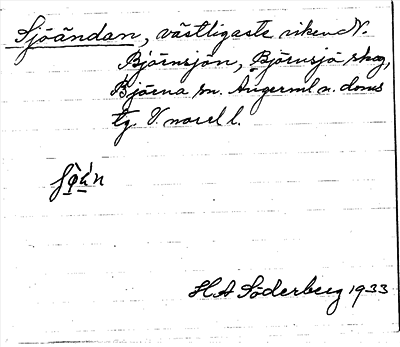 Sjöändan, västligaste viken N.
Björnsjön, Björnsjö skog,
Björna sn. Ångerml n. doms
tg V norrl l.
H A Söderberg 1933